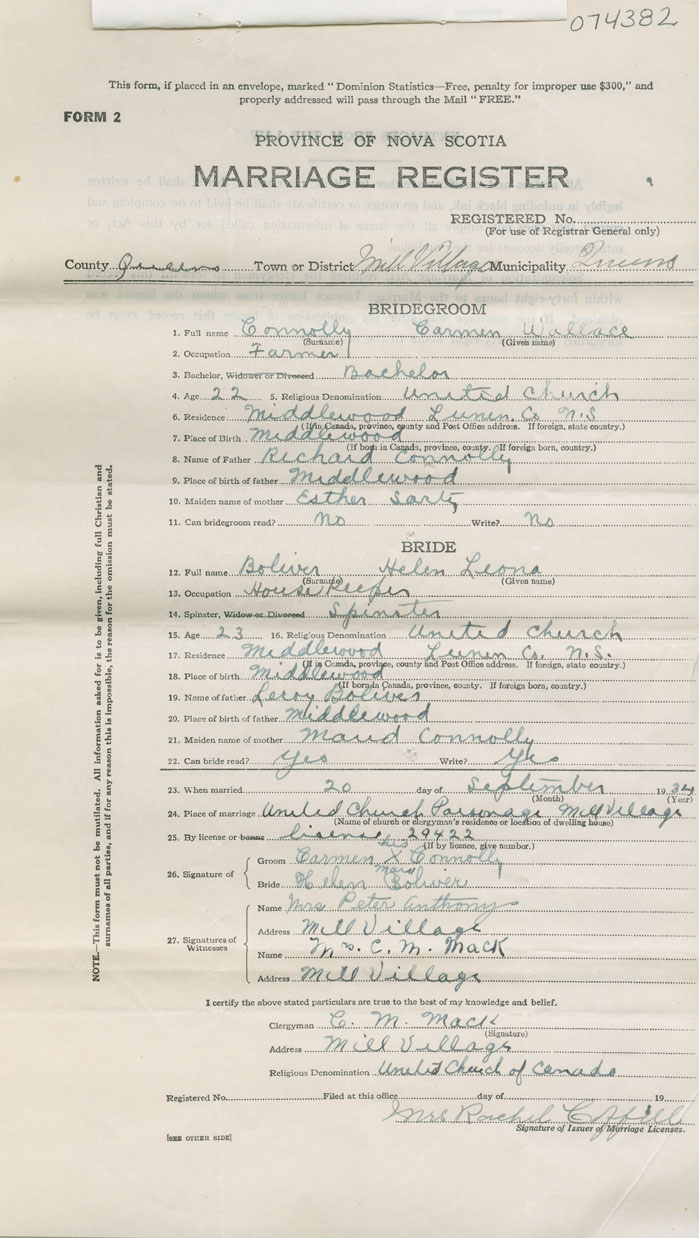 074382
This form, if placed in an envelope, marked "Dominion Statistics—Free, penalty for improper use $300," and
properly addressed will pass through the Mail "FREE."
FORM 2
PROVINCE OF NOVA SCOTIA
MARRIAGE REGISTER
REGISTERED No.
(For use of Registrar General only)
County Town or District Mill Village Municipality Queens
BRIDEGROOM
1. Full name Connolly Carmen Wallace
(Surname) (Given name)
2. Occupation Farmer
3. Bachelor, Widower or Divorced Bachelor
4. Age 22 5. Religious Denomination United Church
6. Residence Middlewood Lunen. Co N.S
(If in Canada, province, county and Post Office address. If foreign, state country.)
7. Place of Birth Middlewood
(If born in Canada, province, county. If foreign born, country.)
8. Name of Father Richard Connolly
9. Place of birth of father Middlewood
10. Maiden name of mother Esther Sarty
11. Can bridegroom read? No Write? No
BRIDE
12. Full name Boliver Helen Leona
(Surname) (Given name)
13. Occupation House Keeper
14. Spinster, Widow or Divorced Spinster
15. Age 23 16. Religious Denomination United Church
17. Residence Middlewood Lunen Co. N.S.
(If in Canada, province, county and Post Office address. If foreign, state country.)
18. Place of birth Middlewood
(If born in Canada, province, county. If foreign born, country.)
19. Name of father Leroy Boliver
20. Place of birth of father Middlewood
21. Maiden name of mother Maud Connolly
22. Can bride read? Yes Write? Yes
23. When married 20 day of September 1934
(Month) (Year)
24. Place of marriage United Church Parsonage Mill Village
(Name of church or clergyman's residence or location of dwelling house)
25. By license or banns license 29422
(If by licence, give number.)
his
26. Signature of Groom Carmen X Connolly
mark
Bride Helen Boliver
27. Signatures of Witnesses
Name Mrs Peter Anthony
Address Mill Village
Name Mrs. C. M. Mack
Address Mill Village
I certify the above stated particulars are true to the best of my knowledge and belief.
Clergyman C. M. Mack
(Signature)
Address Mill Village
Religious Denomination United Church of Canada
Registered No. Filed at this office day of 19
Mrs Rachel
Signature of Issuer of Marriage Licenses.
[SEE OTHER SIDE]
NOTE.—This form must not be mutilated. All information asked for is to be given, including full Christian and
surnames of all parties, and if for any reason this is impossible, the reason for the omission must be stated.